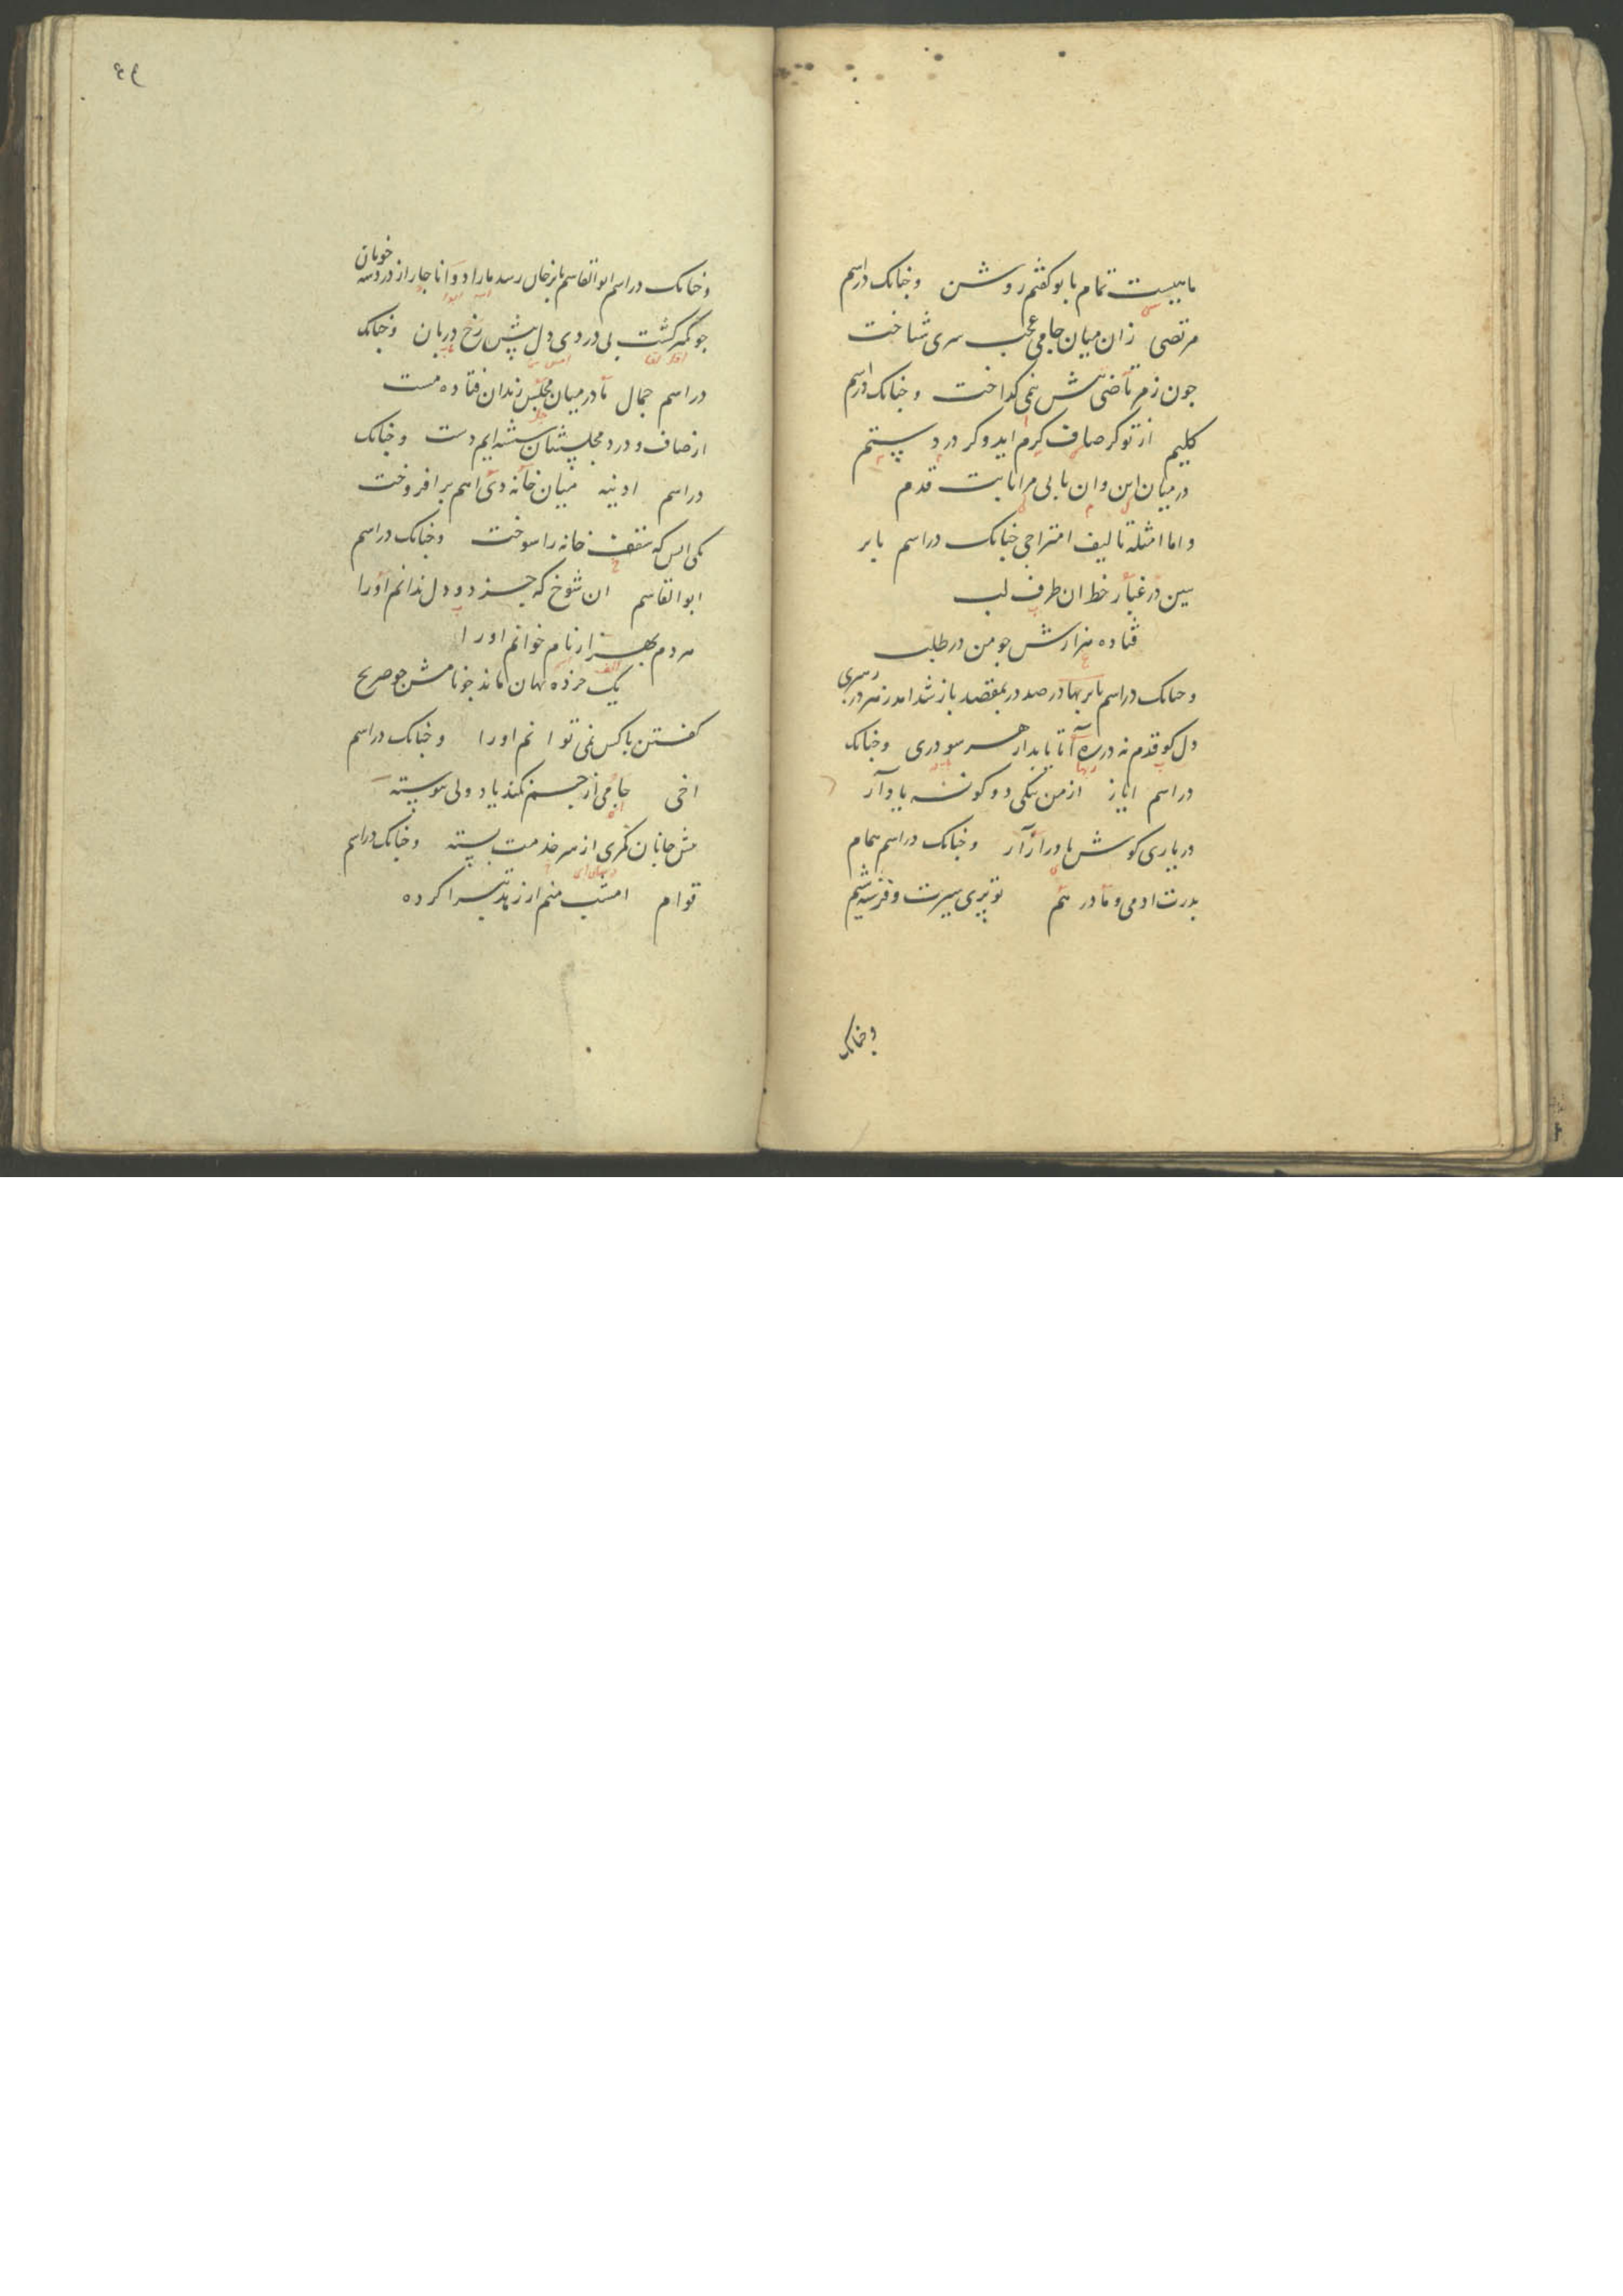 ماهیست تمام با تو کفتم روشن وچنانک دراسم
مرتضی زان میان جامی عجب سری شناخت
جون زمرتاضی تنش نمی کداخت وچنانک دراسم
کلیم از تو کر صاف کرم اید وکر درد ستم
در میان این وان یابی مرا ثابت قدم
واما امثله تالیف امتزاجی چنانک دراسم بابر
بین در غبار خط ان طرف لب
فتاده هزارش جو من در طلب
وچنانک دراسم بابر بهادر صد در بمقصد باز شد امد ز هر در رهبری
دل کو قدم نه در ره آتا یابد از هر سو دری وچنانک
دراسم ایاز از من یکی دو کونه یاد آر
در یاری کوش ها دراز آر وچنانک دراسم همام
بدرت ادمی و مادر هم تو پری سیرت وفرشته شیم
وچنانک
٤٩
وچنانک دراسم ابوالقاسم بابرخان رسد مارا دوا ناجار از درد سه خوبان
جو کمتر کشت بی دردی دل پیش رخ دربان وچنانک
دراسم جمال تا در میان مجلس رندان فتاده مست
از صاف ودرد مجلسشان شسته ایم دست وچنانک
دراسم ادینه میان خانه دی اهم برافروخت
یکی اتش که سقف خانه را سوخت وچنانک دراسم
ابوالقاسم ان شوخ که جز دو دل ندانم اورا
هردم بهزار نام خوانم اورا
یک خرده نهان ماند جو نامش جو صریح
کفتن با کس نمی توانم اورا وچنانک دراسم
اخی جامی از جشم نکند یاد ولی پیوسته
پیش جانان کمری از سر خدمت بسته وچنانک دراسم
قوام امشب منم از زهد تبرا کرده